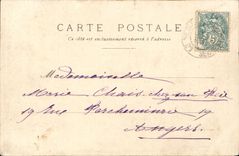 CARTE POSTALE
Ce côté est exclusivement réservé à l'adresse
Mademoiselle
Marie Chais chez son Père
19 Rue Parcheminerie 19
Angers